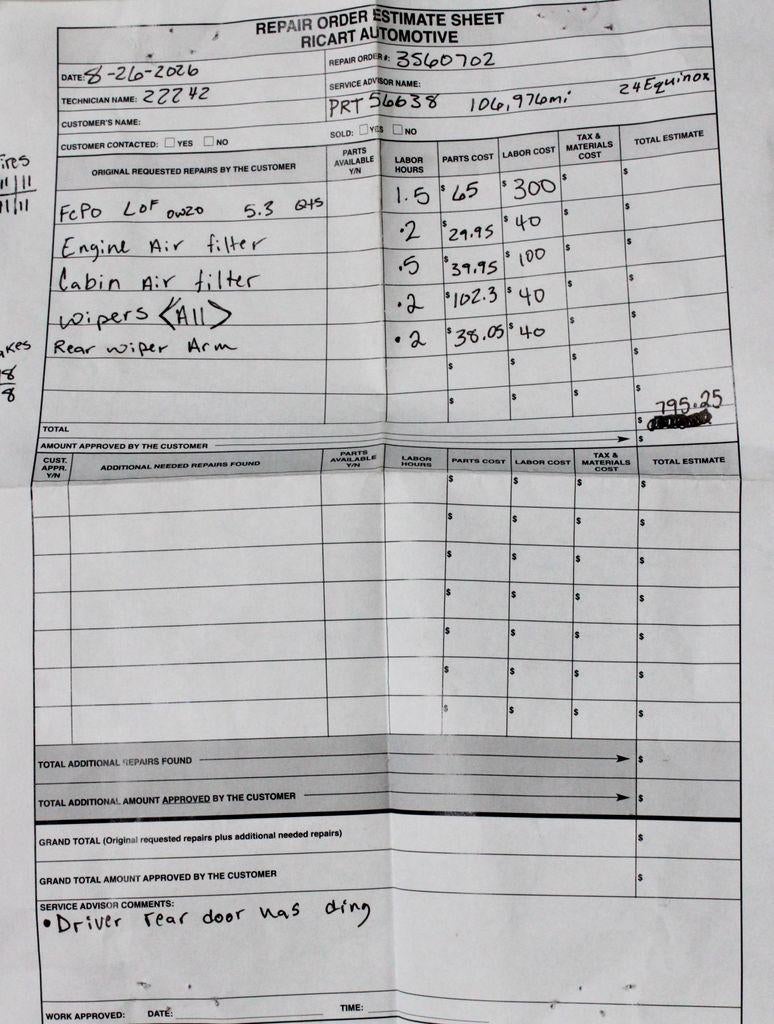 REPAIR ORDER ESTIMATE SHEET
RICART AUTOMOTIVE
DATE: 8-26-2026
REPAIR ORDER #: 3560702
TECHNICIAN NAME: 22242
SERVICE ADVISOR NAME:
PRT 56638 106,976mi 24 Equinox
CUSTOMER'S NAME:
CUSTOMER CONTACTED: YES NO
SOLD: YES NO
ORIGINAL REQUESTED REPAIRS BY THE CUSTOMER PARTS AVAILABLE Y/N LABOR HOURS PARTS COST LABOR COST TAX & MATERIALS COST TOTAL ESTIMATE
FCPO LOF 0W20 5.3 Qts 1.5 $65 $300 $ $
Engine Air filter .2 $29.95 $40 $ $
Cabin Air filter .5 $39.95 $100 $ $
wipers <All> .2 $102.3 $40 $ $
Rear wiper Arm .2 $38.05 $40 $ $
$ $ $ $
$ $ $ $
TOTAL $ 795.25
AMOUNT APPROVED BY THE CUSTOMER $
CUST. APPR. Y/N ADDITIONAL NEEDED REPAIRS FOUND PARTS AVAILABLE Y/N LABOR HOURS PARTS COST LABOR COST TAX & MATERIALS COST TOTAL ESTIMATE
$ $ $ $
$ $ $ $
$ $ $ $
$ $ $ $
$ $ $ $
$ $ $ $
$ $ $ $
TOTAL ADDITIONAL REPAIRS FOUND $
TOTAL ADDITIONAL AMOUNT APPROVED BY THE CUSTOMER $
GRAND TOTAL (Original requested repairs plus additional needed repairs) $
GRAND TOTAL AMOUNT APPROVED BY THE CUSTOMER $
SERVICE ADVISOR COMMENTS:
• Driver rear door has ding
WORK APPROVED: DATE: TIME:
11/11
11/11
8
8